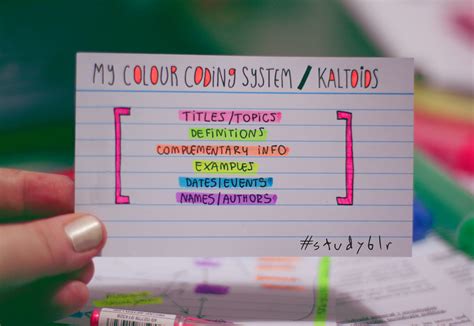 MY COLOUR CODING SYSTEM / KALTOIDS
TITLES/TOPICS
DEFINITIONS
COMPLEMENTARY INFO
EXAMPLES
DATES/EVENTS
NAMES/AUTHORS
#studyblr